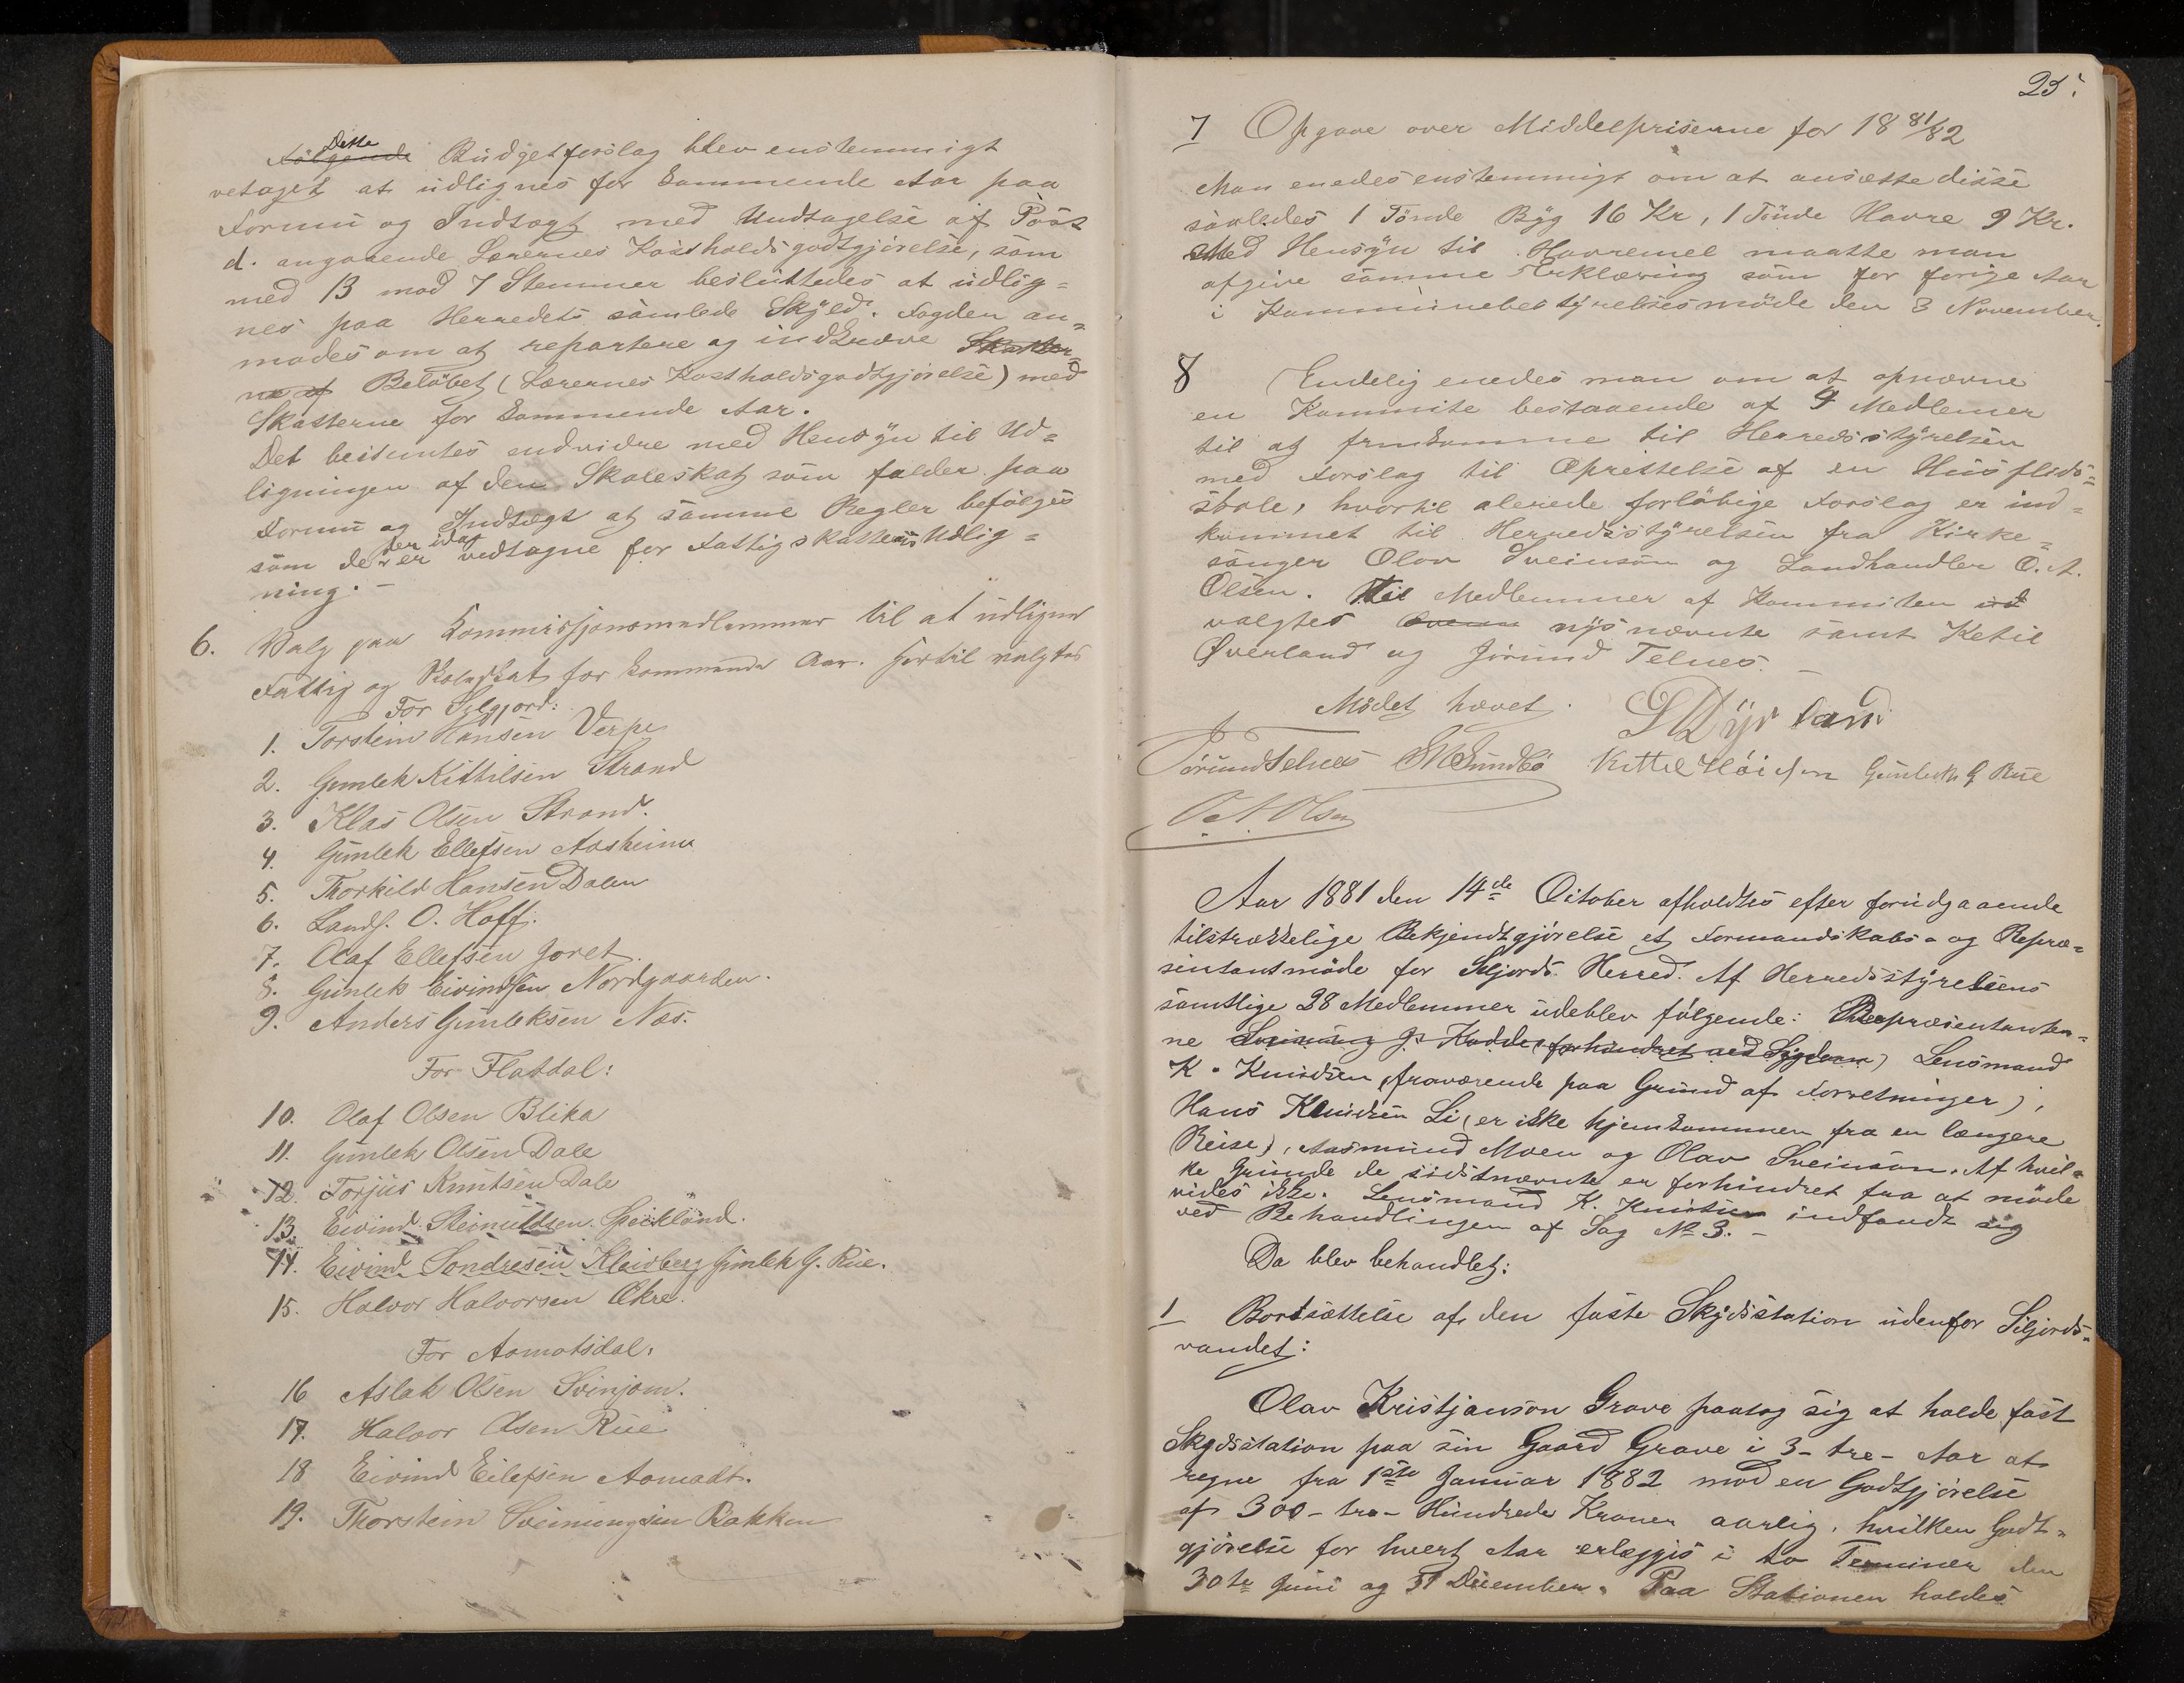 Dette
Følgende Budgetforslag blev enstemmigt
vetaget at udlignes for kommende Aar paa
Formu og Indtægt med Undtagelse af Post
d. angaaende Lærernes Kostholdsgodtgjørelse, som
med 13 mod 7 Stemmer besluttedes at udlig=
nes paa Herredets samlede Skyld. Fogden an=
modes om at repartere og indkræve Skatter=
ne af Beløbet (Lærernes Kostholdsgodtgjørelse) med
Skatterne for kommende Aar.
Det besluntes endvidre med Hensyn til Ud=
ligningen af den Skoleskat som falder paa
Formu og Indtægt at samme Regler befølges
der idag
som der er vedtagne for Fattigskattens Udlig=
ning. –
6. Valg paa Kommissjonsmedlemmer til at udligne
Fattig og Skoleskat for kommende Aar. Hertil valgtes
For Selgjord:
1. Torstein Hansen Verpe
2. Gunlek Kittilsen Strand
3. Klas Olsen Strand.
4. Gunlek Ellefsen Aasheim
5. Thorkild Hansen Dalen
6. Landh. O. Hoff.
7. Olaf Ellefsen Joret.
8. Gunlek Eivindsen Nordgaarden.
9. Anders Gunleksen Næs.
For Flatdal:
10. Olaf Olsen Blika
11. Gunlek Olsen Dale
12. Torjus Knutsen Dale
13. Eivind Steinuldsen Speikland.
14. Eivind Sondresen Kleivberg Gunlek G. Rue.
15. Halvor Halvorsen Ekre.
For Aamotsdal:
16 Aslak Olsen Svinjom.
17. Halvor Olsen Rue
18 Eivind Eilefsen Aamodt.
19. Thorstein Sveinungsen Bakken
25.
7 Opgave over Middelpriserne for 18 81/82
Man enedes enstemmigt om at ansætte disse
saaledes 1 Tønde Byg 16 Kr, 1 Tønde Havre 9 Kr.
Med Hensyn til Havremel maatte man
afgive samme Erklæring som for forige Aar
i Kommunebestyrelsesmøde den 3 November.
8 Endelig enedes man om at opnævne
en Kommite bestaaende af 4 Medlemer
til at fremkomme til Herredsstyrelsen
med Forslag til Oprettelse af en Husflids=
skole, hvortil alerede forløbige Forslag er ind=
kommet til Herredsstyrelsen fra Kirke=
sanger Olav Sveinson og Landhandler O. A.
Olsen. Til Medlemmer af Kommiten
valgtes nysnævnte samt Ketil
Øverland og Jørund Telnes. –
Mødet hævet.
Dyrland
Jørund Telnes Sundbø Kittel Høisæn Gunleik G Rue
O A Olsen
Aar 1881 den 14de October afholdtes efter forudgaaende
tilstrækkelige Bekjendtgjørelse et Formandskabs- og Repræ=
sentantmøde for Seljords Herred. Af Herredsstyrelsens
samtlige 28 Medlemmer udeblev følgende: Repræsentanter=
ne Sveinung Js Kodde (forhindret ved Sygdom) Lensmand
K. Knudsen (fraværende paa Grund af Forretninger),
Hans Knudsen Li (er ikke hjemkommen fra en længere
Reise), Aasmund Moen og Olav Sveinson. Af hvil=
ke Grunde de sidstnævnte er forhindret fra at møde
vides ikke. Lensmand K. Knudsen indfandt sig
ved Behandlingen af Sag No 3. –
Da blev behandlet:
1 Bortsættelse af den faste Skydsstation udenfor Seljords=
vandet:
Olav Kristjanson Grave paatog sig at holde fast
Skydsstation paa sin Gaard Grave i 3 - tre - Aar at
regne fra 1ste Januar 1882 mod en Godtgjørelse
af 300 - tre - Hundrede Kroner aarlig, hvilken Godt=
gjørelse for hvert Aar erlægges i to Terminer den
30te Juni og 31 December. Paa Stationen holdes